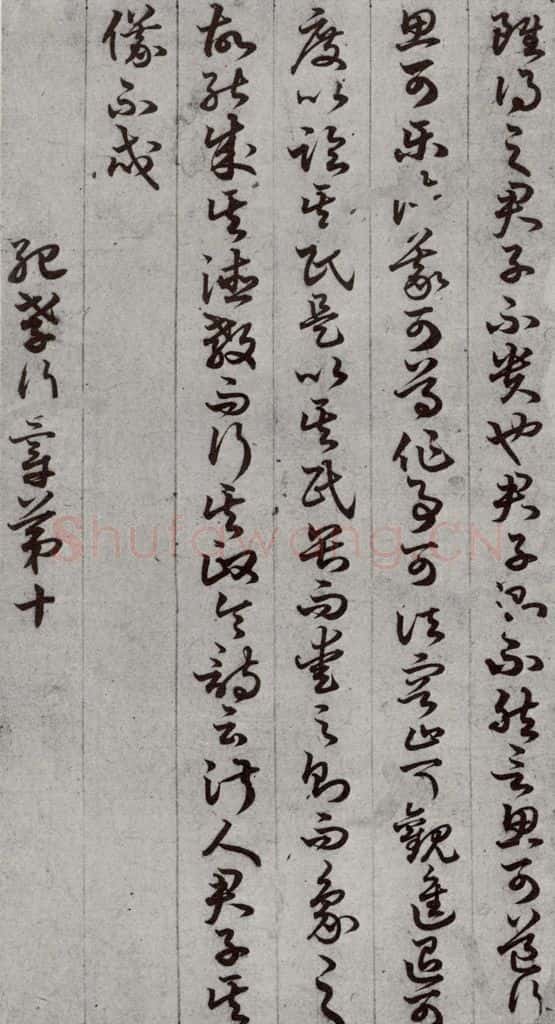 雖得之君子不貴也君子則不然言思可道行
思可樂德義可尊作事可法容止可觀進退可
度以臨其民是以其民畏而愛之則而象之
故能成其德教而行其政令詩云淑人君子其
儀不忒
紀孝行章第十
Shufawang.CN